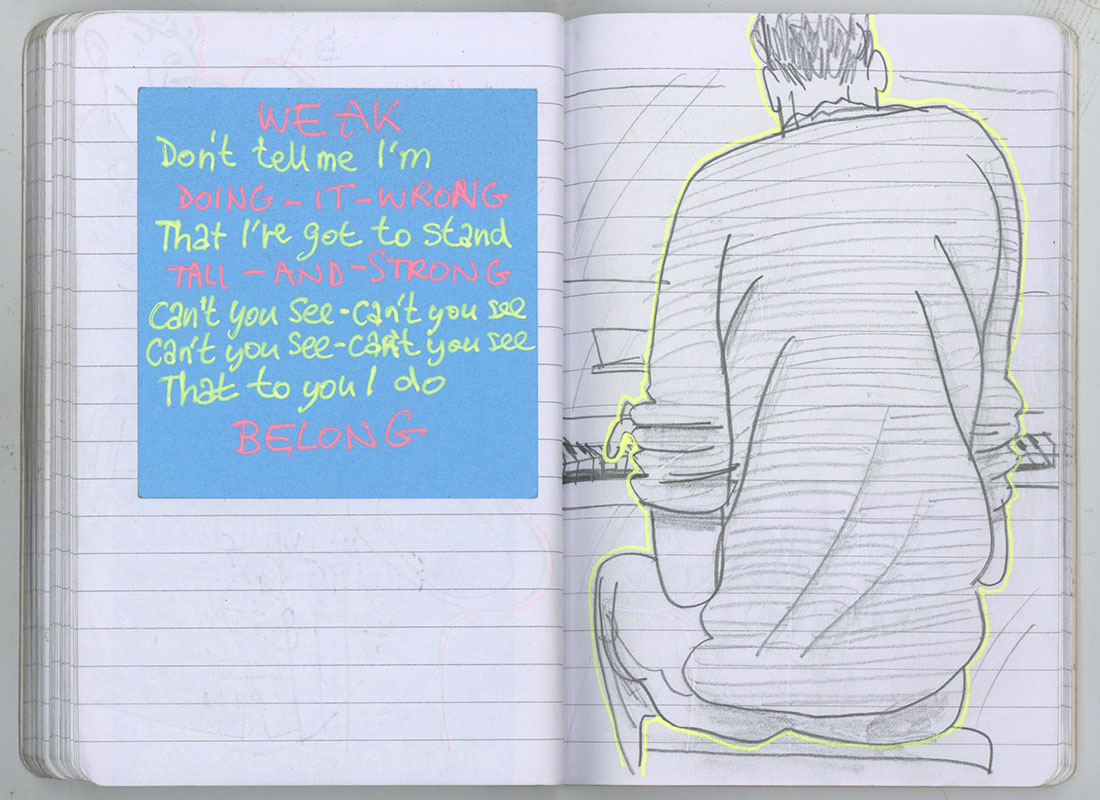 WEAK
Don't tell me I'm
DOING-IT-WRONG
That I've got to stand
TALL-AND-STRONG
Can't you see-can't you see
Can't you see-can't you see
That to you I do
BELONG